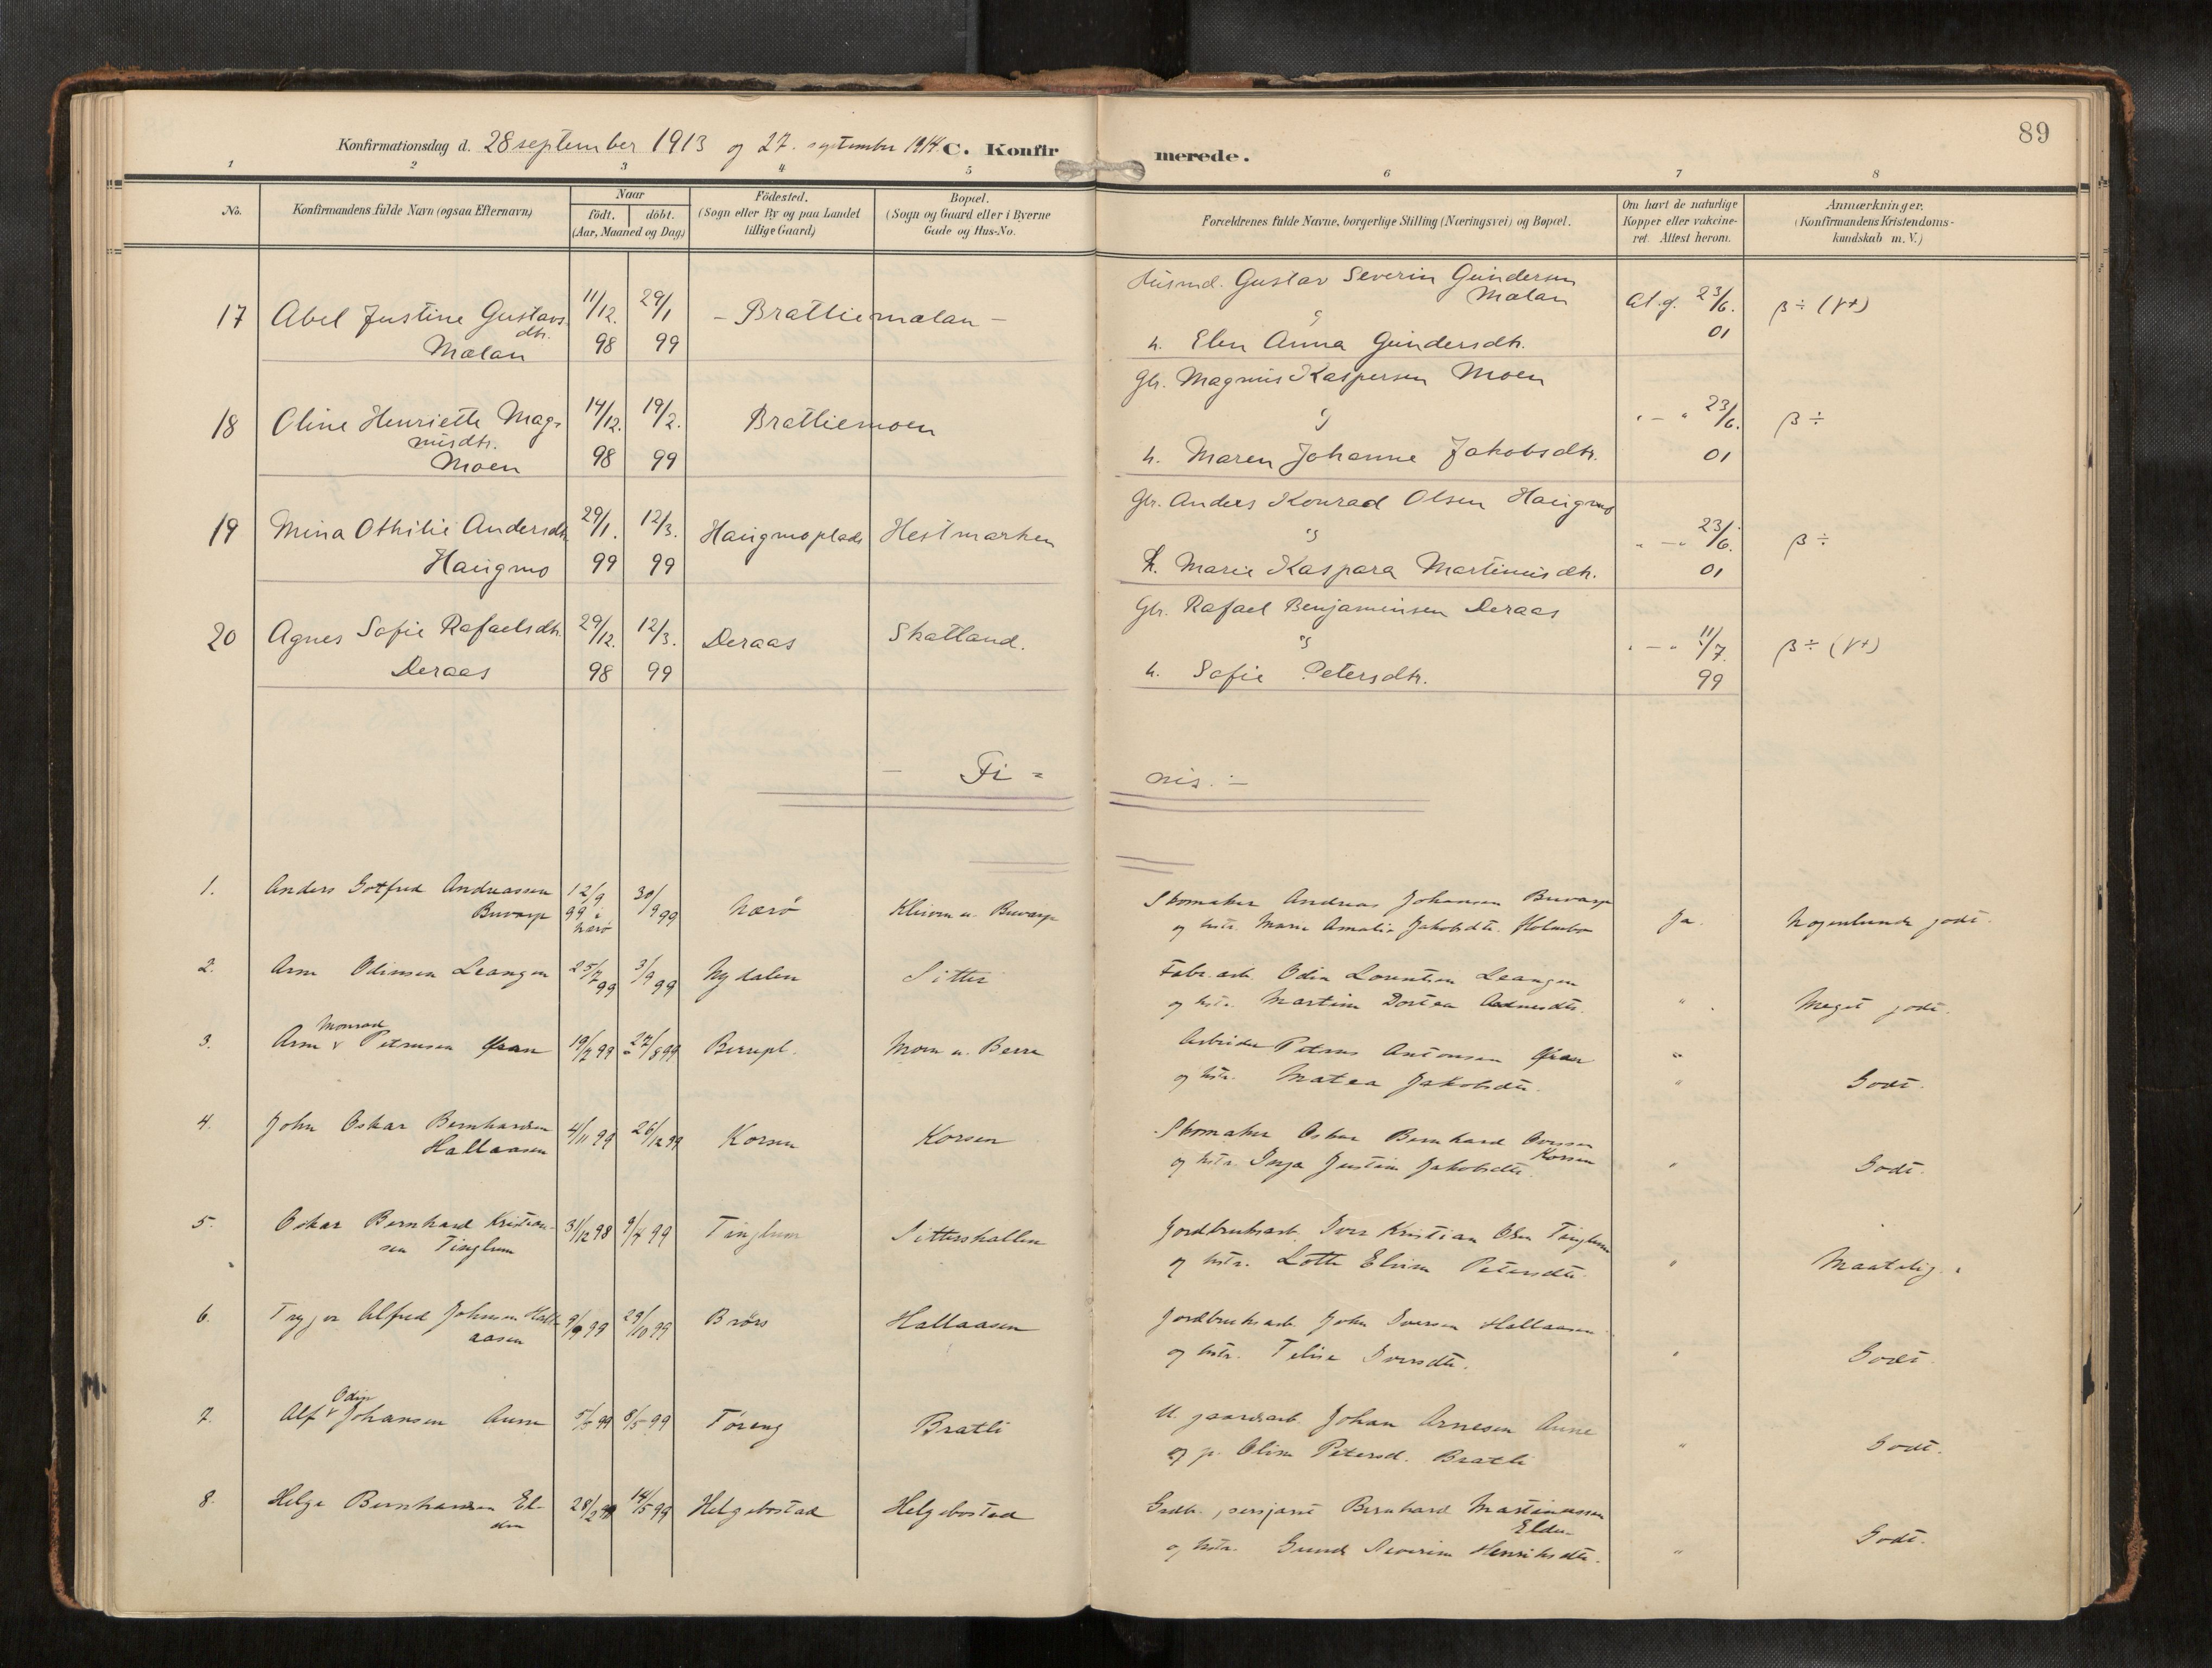 89
Konfirmationsdag d. 28 september 1913 og 27. september 1914. C. Konfirmerede.
1 2 3 4 5 6 7 8
No.
Konfirmandens fulde Navn (ogsaa Efternavn)
Naar
födt. döbt.
(Aar, Maaned og Dag)
Födested.
(Sogn eller By og paa Landet
tillige Gaard)
Bopæl.
(Sogn og Gaard eller i Byerne
Gade og Hus-No.
Forældrenes fulde Navne, borgerlige Stilling (Næringsvei) og Bopæl.
Om havt de naturlige
Kopper eller vakcine-
ret. Attest herom.
Anmærkninger.
(Konfirmandens Kristendoms-
kundskab m. V.)
Husmd. Gustav Severin Gundersen
Mælan
17 Abel Justine Gustavs 11/12. 29/1 - Brattiemælan - At. g. 23/6. β ÷ (γ+)
dtr.
Mælan 98 99 h. Elen Anna Gundersdtr. 01
Gbr. Magnus Kaspersen Moen
18 Oline Henriette Mag- 14/12. 19/2. Brattiemoen " — " 23/6. β ÷
nusdtr.
Moen 98 99 h. Maren Johanne Jakobsdtr. 01
Gbr. Anders Konrad Olsen Haugmo
19 Mina Othilie Andersdtr. 29/1. 12/3. Haugmoplads Hestmarken " — " 23/6. β ÷
Haugmo 99 99 h. Marie Kaspara Martinusdtr. 01
Gbr. Rafael Benjaminsen Deraas
20 Agnes Sofie Rafaelsdtr. 29/12. 12/3. Deraas Skatland. " — " 11/7. β ÷ (γ+)
Deraas 98 99 h. Sofie Petersdtr. 99
— Fi = nis. —
1. Anders Gotfred Andreassen 12/9 30/9 99 Nærö Skomaker Andreas Johansen Buvarp
Buvarp 99 i Nærö u. Buvarp og hstr. Marie Amalie Jakobsdtr. Holmbo Ja. Nogenlunde godt.
2. Arne Odinsen Leangen 25/7 99 3/9 99 Nydalen Sitter Fabr.arb. Odin Leangen
og hstr. Dortea " Meget godt.
3. Arne Petersen 19/7 99 27/8 99 Moen u. Berre Arbeider Petrus Antonsen "
Monrad
og hstr. Matea Jakobsdtr. " Godt.
4. John Oskar Bernhardsen 4/11 99 26/12 99 Korsen Korsen Skomaker Oskar Bernhard
Hallaasen Korsen
og hstr. Inga Justine Jakobsdtr. " Godt.
5. Oskar Bernhard Kristian- 31/12 98 9/4 99 Tinglum Sittershallen Jordbruksarb. Iver Kristian Olsen Tinglum
sen Tinglum og hstr. Petersdtr. " Maatelig.
6. Trygve Alfred Johnsen Hall- 9/9 99 29/10 99 Hallaasen Jordbruksarb. John Iversen Hallaasen
aasen og hstr. Iversdtr. " Godt.
7. Alf Johansen Aune 5/3 99 8/5 99 Töreng Bratli U. gaardsarb. Johan Arnesen Aune
Odin
og p. Oline Petersd. Bratli " Godt.
8. Helge Bernhardsen El- 28/2 99 14/5 99 Helgebostad Helgebostad Gaardbr., sersjant Bernhard Martinussen
den Elden
og hstr. Severine Henriksdtr. " Godt.